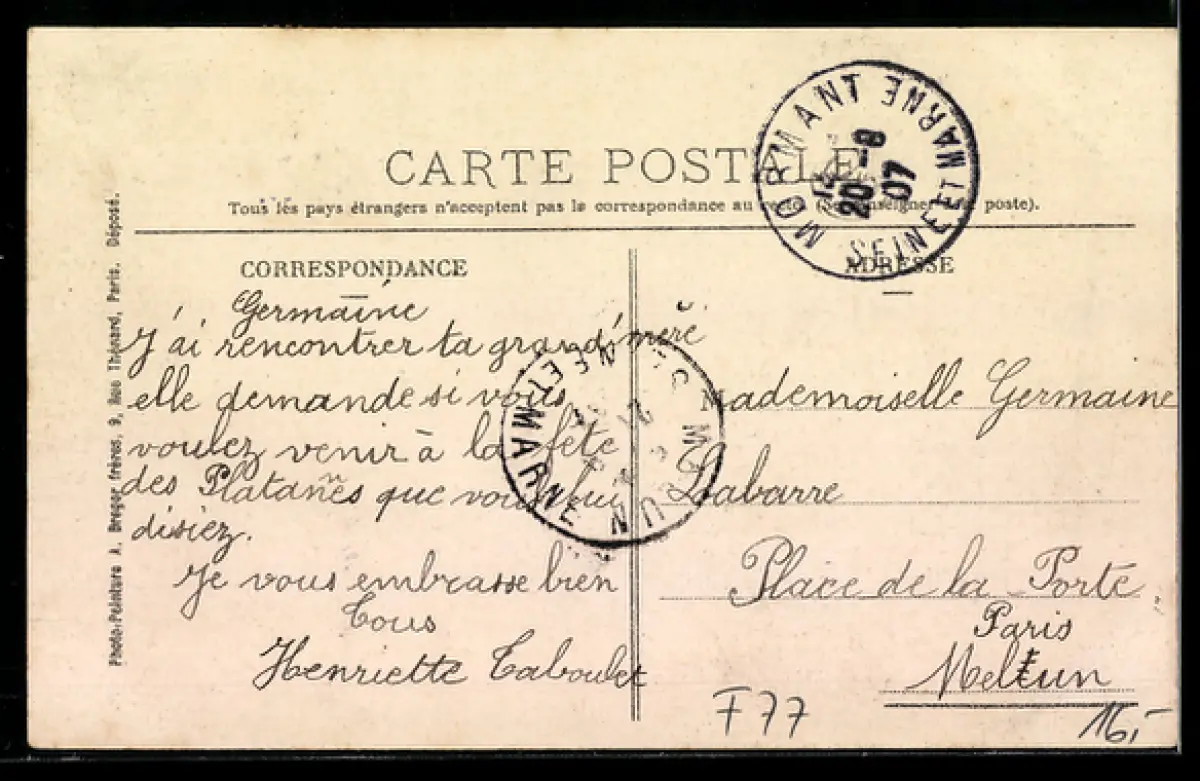 CARTE POSTALE
Tous les pays étrangers n'acceptent pas la correspondance au recto (Se renseigner à la poste).
MORMANT SEINE ET MARNE
20 -8
07
CORRESPONDANCE
Germaine
J'ai rencontrer ta grand'mère
elle demande si vous
voulez venir à la fête
des Platanes que vous lui
disiez.
Je vous embrasse bien
tous
Henriette Taboulet
MELUN
NE ET MARNE
ADRESSE
Mademoiselle Germaine
Labarre
Place de la Porte
Paris
Melun
F77
16,-
Photo-Peinture A. Breger frères, 9, Rue Thénard, Paris. Déposé.